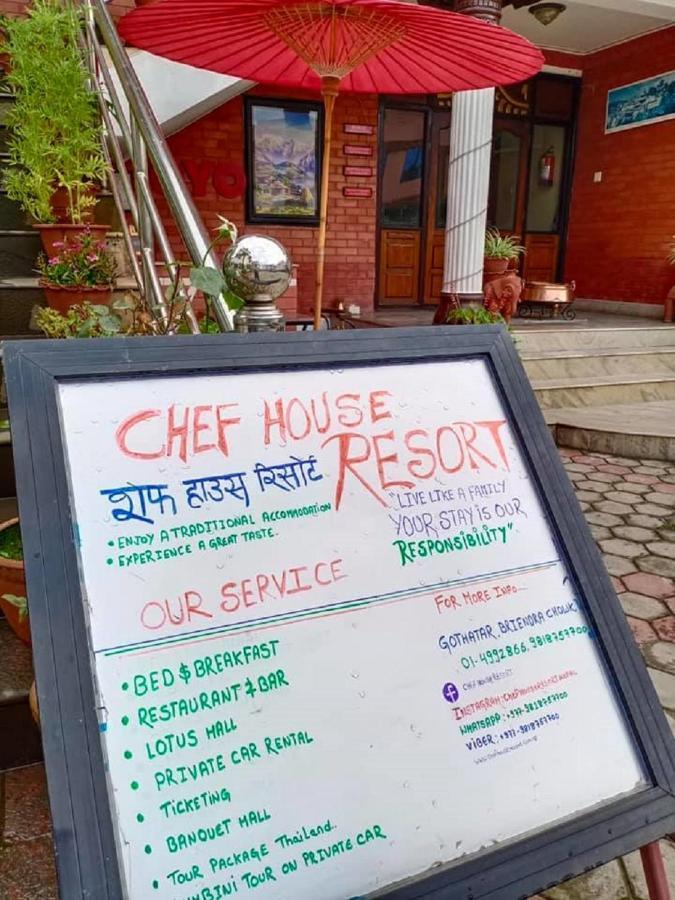 YO
CHEF HOUSE
RESORT
शेफ हाउस रिसोर्ट
• ENJOY A TRADITIONAL ACCOMMODATION
• EXPERIENCE A GREAT TASTE.
"LIVE LIKE A FAMILY
YOUR STAY IS OUR
RESPONSIBILITY"
OUR SERVICE
• BED $ BREAKFAST
• RESTAURANT & BAR
• LOTUS HALL
• PRIVATE CAR RENTAL
• TICKETING
• BANQUET HALL
• TOUR PACKAGE Thailand..
TOUR ON PRIVATE CAR
FOR MORE INFO...
GOTHATAR, BRIENDRA CHOWK
01-4992866, 9818757700
f CHEF HOUSE RESORT
INSTAGRAM:
WHATSAPP: +977-9818757700
VIBER: +977-9818757700